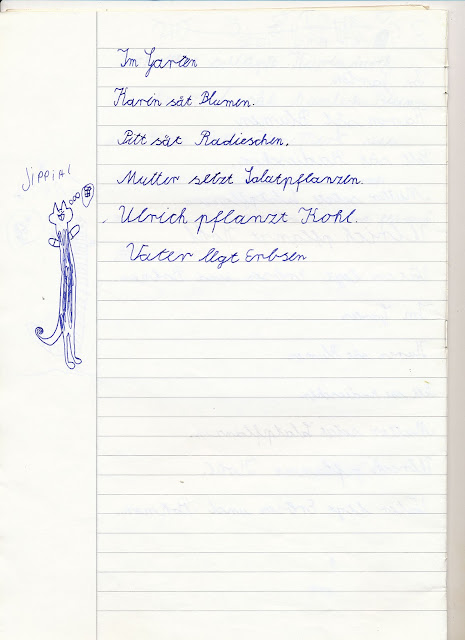 Im Garten
Karin sät Blumen.
Pitt sät Radieschen.
Mutter setzt Salatpflanzen.
Jippii!
Ulrich pflanzt Kohl.
Vater legt Erbsen